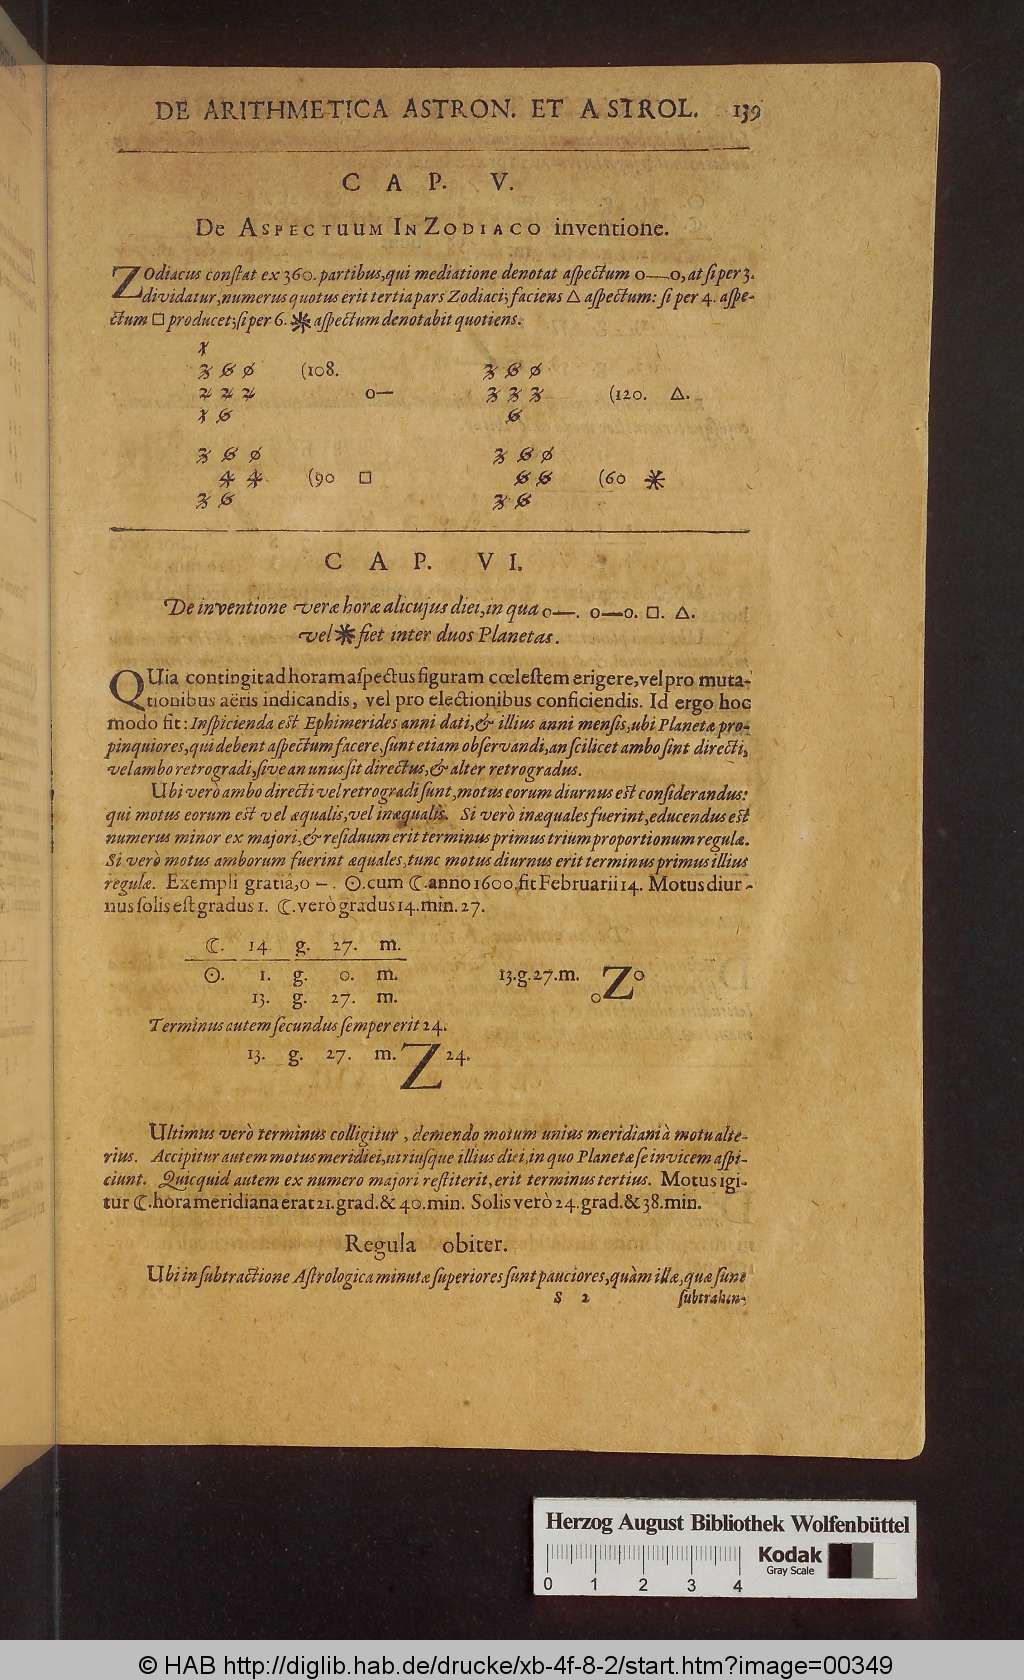 DE ARITHMETICA ASTRON. ET ASTROL. 139
CAP. V.
De Aspectuum In Zodiaco inventione.
ZOdiacus constat ex 360. partibus, qui mediatione denotat aspectum o—o, at si per 3.
dividatur, numerus quotus erit tertia pars Zodiaci; faciens △ aspectum: si per 4. aspe-
ctum □ producet; si per 6. ⚹ aspectum denotabit quotiens.
1
3 6 0 (108. 3 6 0
2 2 2 o— 3 3 3 (120. △.
1 6 6
3 6 0 3 6 0
4 4 (90 □ 6 6 (60 ⚹
3 6 3 6
CAP. VI.
De inventione veræ horæ alicujus diei, in qua o—. o—o. □. △.
vel ⚹ fiet inter duos Planetas.
QUia contingit ad horam aspectus figuram cœlestem erigere, vel pro muta-
tionibus aëris indicandis, vel pro electionibus conficiendis. Id ergo hoc
modo fit: Inspicienda est Ephimerides anni dati, & illius anni mensis, ubi Planetæ pro-
pinquiores, qui debent aspectum facere, sunt etiam observandi, an scilicet ambo sint directi,
vel ambo retrogradi, sive an unus sit directus, & alter retrogradus.
Ubi verò ambo directi vel retrogradi sunt, motus eorum diurnus est considerandus:
qui motus eorum est vel æqualis, vel inæqualis. Si verò inæquales fuerint, educendus est
numerus minor ex majori, & residuum erit terminus primus trium proportionum regulæ.
Si verò motus amborum fuerint æquales, tunc motus diurnus erit terminus primus illius
regulæ. Exempli gratiâ, o—. ☉. cum ☾. anno 1600. fit Februarii 14. Motus diur-
nus solis est gradus 1. ☾. verò gradus 14. min. 27.
☾. 14 g. 27. m.
☉. 1. g. 0. m. 13. g. 27. m. oZo
13. g. 27. m.
Terminus autem secundus semper erit 24.
13. g. 27. m. Z 24.
Ultimus verò terminus colligitur, demendo motum unius meridiani à motu alte-
rius. Accipitur autem motus meridiei, utriusque illius diei, in quo Planetæ se invicem aspi-
ciunt. Quicquid autem ex numero majori restiterit, erit terminus tertius. Motus igi-
tur ☾. hora meridiana erat 21. grad. & 40. min. Solis verò 24. grad. & 38. min.
Regula obiter.
Ubi in subtractione Astrologica minutæ superiores sunt pauciores, quàm illæ, quæ sunt
S 2 subtrahen-
Herzog August Bibliothek Wolfenbüttel
Kodak
Gray Scale
0 1 2 3 4
© HAB http://diglib.hab.de/drucke/xb-4f-8-2/start.htm?image=00349